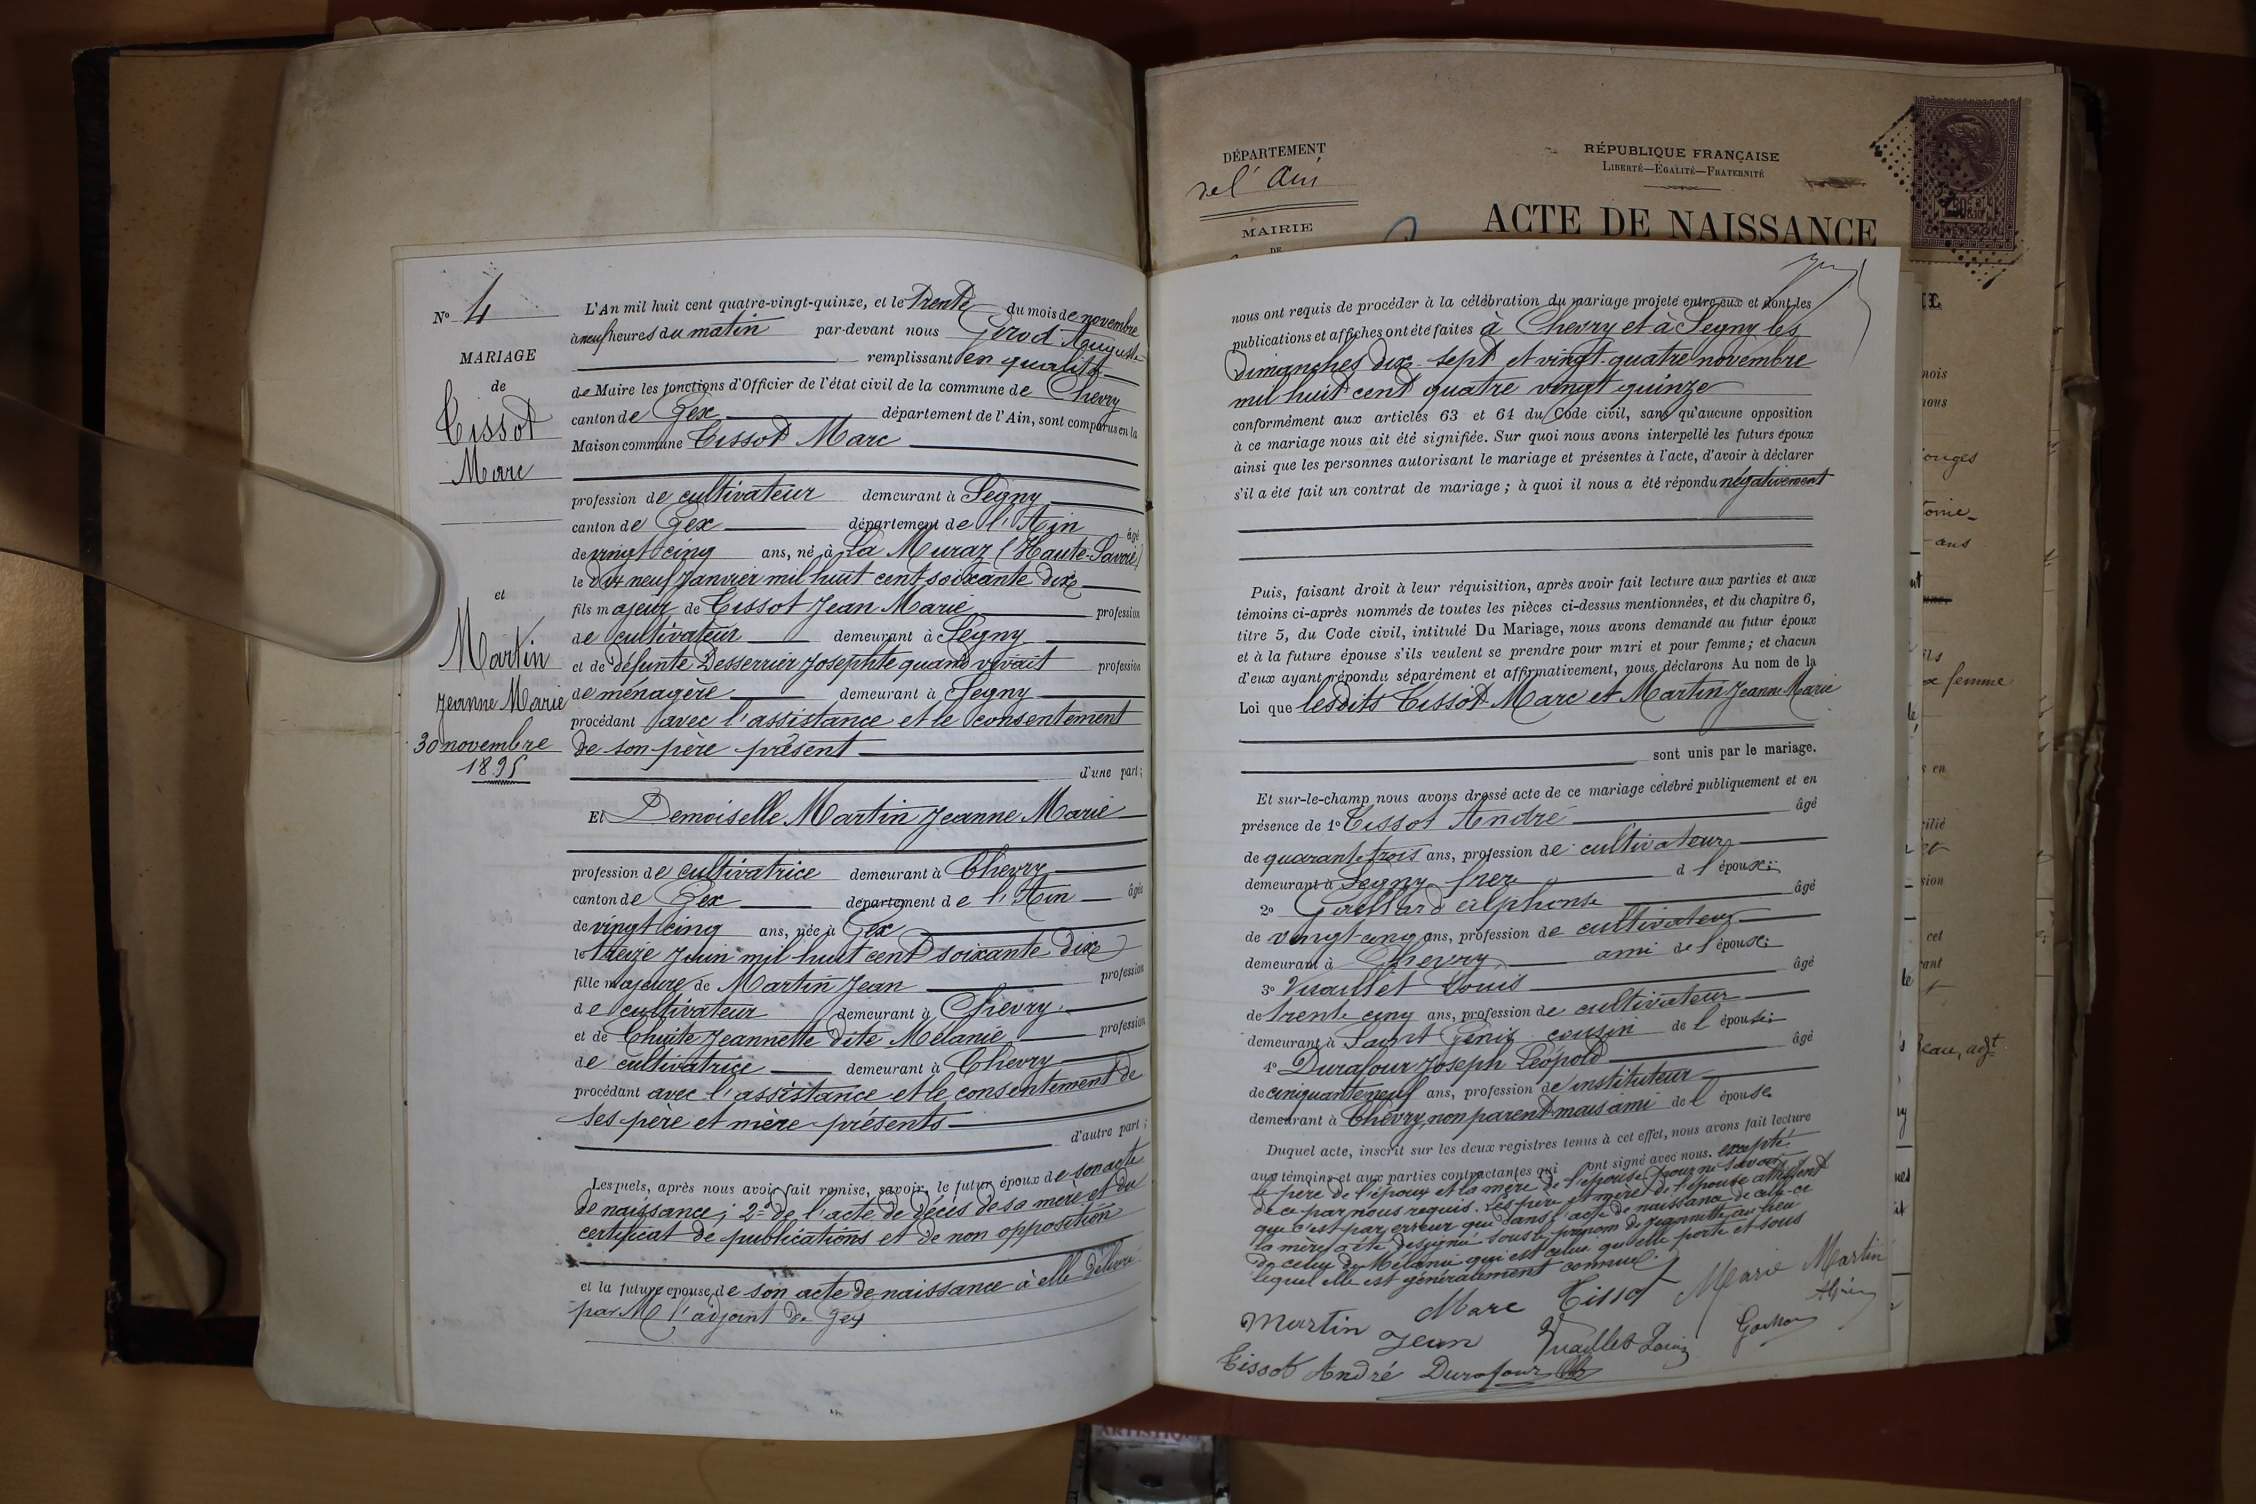 N° 4
MARIAGE
de
Tissot
Marc
et
Martin
Jeanne Marie
30 novembre
1895
L'An mil huit cent quatre-vingt-quinze, et le trente du mois de novembre
à neuf heures du matin par-devant nous Gerod Auguste
remplissant en qualité
de Maire les fonctions d'Officier de l'état civil de la commune de Chevry
canton de Gex département de l'Ain, sont comparus en la
Maison commune Tissot Marc
profession de cultivateur demeurant à Segny
canton de Gex département de l'Ain âgé
de vingt cinq ans, né à La Muraz (Haute-Savoie)
le dix neuf Janvier mil huit cent soixante dix
fils majeur de Tissot Jean Marie profession
de cultivateur demeurant à Segny
et de défunte Desserrier Josephte quand vivait profession
de ménagère demeurant à Segny
procédant avec l'assistance et le consentement
de son père présent
d'une part;
Et Demoiselle Martin Jeanne Marie
profession de cultivatrice demeurant à Chevry
canton de Gex département de l'Ain âgée
de vingt cinq ans, née à Gex
le treize Juin mil huit cent soixante dix
fille majeure de Martin Jean profession
de cultivateur demeurant à Chevry
et de Chuite Jeannette dite Mélanie profession
de cultivatrice demeurant à Chevry
procédant avec l'assistance et le consentement de
ses père et mère présents
d'autre part;
Lesquels, après nous avoir fait remise, savoir, le futur époux de son acte
de naissance; 2° de l'acte de décès de sa mère et du
certificat de publications et de non opposition
et la future épouse de son acte de naissance à elle délivré
par M l'adjoint de Gex
DÉPARTEMENT
de l'Ain
MAIRIE
DE
RÉPUBLIQUE FRANÇAISE
LIBERTÉ—ÉGALITÉ—FRATERNITÉ
ACTE DE NAISSANCE
nous ont requis de procéder à la célébration du mariage projeté entre eux et dont les
publications et affiches ont été faites à Chevry et à Segny les
dimanches dix-sept et vingt-quatre novembre
mil huit cent quatre vingt quinze
conformément aux articles 63 et 64 du Code civil, sans qu'aucune opposition
à ce mariage nous ait été signifiée. Sur quoi nous avons interpellé les futurs époux
ainsi que les personnes autorisant le mariage et présentes à l'acte, d'avoir à déclarer
s'il a été fait un contrat de mariage; à quoi il nous a été répondu négativement
Puis, faisant droit à leur réquisition, après avoir fait lecture aux parties et aux
témoins ci-après nommés de toutes les pièces ci-dessus mentionnées, et du chapitre 6,
titre 5, du Code civil, intitulé Du Mariage, nous avons demandé au futur époux
et à la future épouse s'ils veulent se prendre pour mari et pour femme; et chacun
d'eux ayant répondu séparément et affirmativement, nous déclarons Au nom de la
Loi que lesdits Tissot Marc et Martin Jeanne Marie
sont unis par le mariage.
Et sur-le-champ nous avons dressé acte de ce mariage célébré publiquement et en
présence de 1° Tissot André âgé
de quarante trois ans, profession de cultivateur
demeurant à Segny frère de l'époux;
2° Alphonse âgé
de vingt-cinq ans, profession de cultivateur
demeurant à Chevry ami de l'époux;
3° Vuaillet Louis âgé
de trente cinq ans, profession de cultivateur
demeurant à Saint Genis cousin de l'épouse;
4° Durafour Joseph Léopold âgé
de cinquante neuf ans, profession de instituteur
demeurant à Chevry, non parent mais ami de l'épouse
Duquel acte, inscrit sur les deux registres tenus à cet effet, nous avons fait lecture
aux témoins et aux parties contractantes qui ont signé avec nous. excepté
le père de l'époux et la mère de l'épouse pour ne savoir
de ce par nous requis. Les père et mère de l'épouse attestent
que c'est par erreur que dans l'acte de naissance de celle-ci
la mère a été désignée sous le prénom de Jeannette au lieu
de celui de Mélanie qui est celui qu'elle porte et sous
lequel elle est généralement connue.
Marc Tissot Marie Martin
Martin Jean Vuaillet Louis
Tissot André Durafour